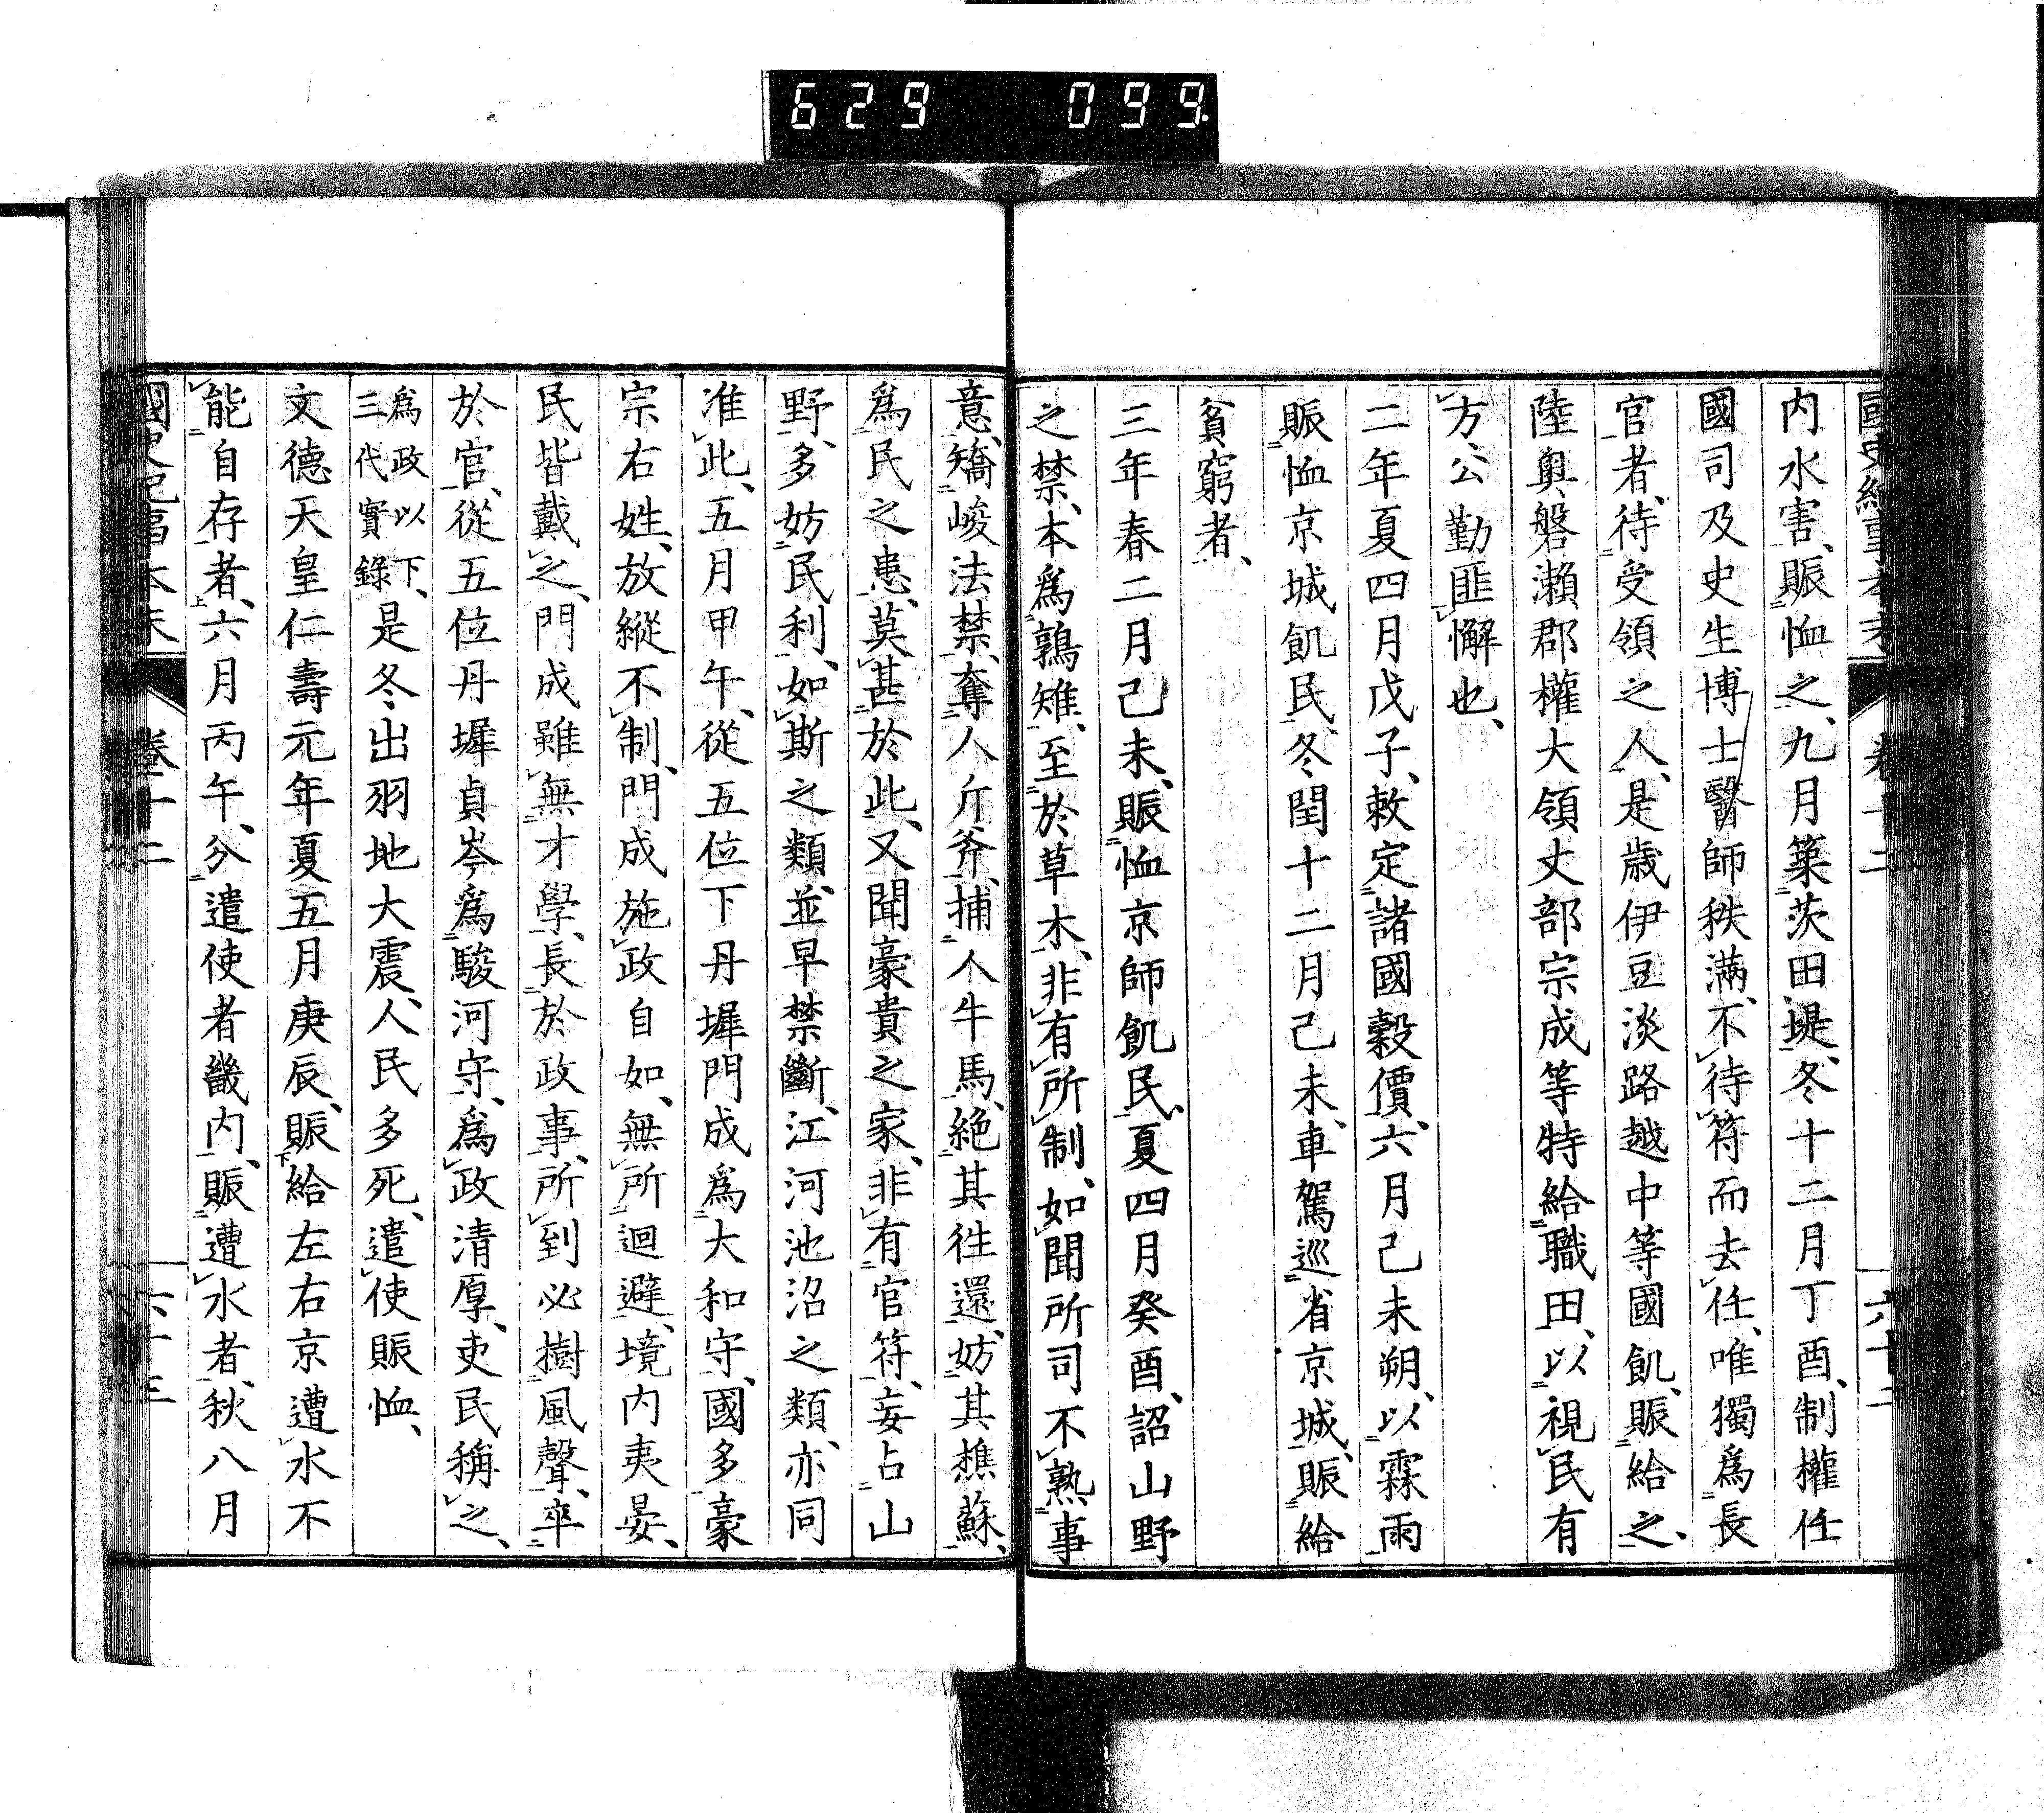 629 099
國史紀事本末 卷十二 六十二
内水害、賑恤之、九月築茨田堤、冬十二月丁酉、制權任
國司及史生博士醫師秩滿、不待符而去任、唯獨爲長
官者、待受領之人、是歳伊豆淡路越中等國飢、賑給之、
陸奧磐瀬郡權大領丈部宗成等特給職田、以視民有
方、公勤匪懈也、
二年夏四月戊子、敕定諸國穀價、六月己未朔、以霖雨
賑恤京城飢民、冬閏十二月己未、車駕巡省京城、賑給
貧窮者、
三年春二月己未、賑恤京師飢民、夏四月癸酉、詔山野
之禁、本爲鶉雉、至於草木、非有所制、如聞所司不熟事
意、矯峻法禁、奪人斤斧、捕人牛馬、絶其徃還、妨其樵蘇、
爲民之患、莫甚於此、又聞豪貴之家、非有官符、妄占山
野、多妨民利、如斯之類、並早禁斷、江河池沼之類、亦同
准此、五月甲午、從五位下丹墀門成爲大和守、國多豪
宗右姓、放縱不制、門成施政自如、無所迴避、境内夷晏、
民皆戴之、門成雖無才學、長於政事、所到必樹風聲、卒
於官、從五位丹墀貞岑爲駿河守、爲政清厚、吏民稱之、
爲政以下、三代實錄 是冬出羽地大震、人民多死、遣使賑恤、
文德天皇仁壽元年夏五月庚辰、賑給左右京遭水不
能自存者、六月丙午、分遣使者畿内、賑遭水者、秋八月
國史紀事本末 卷十二 六十三